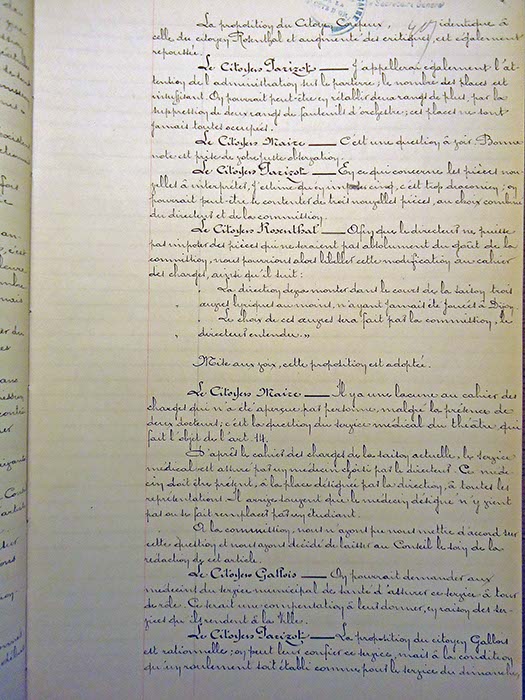 La proposition du Citoyen identique à
celle du citoyen Rosenthal et augmentée des critiques, est également
repoussée.
Le Citoyen Parizot — J'appellerai également l'at-
tention de l'administration sur le parterre, le nombre des places est
insuffisant. On pourrait peut-être en rétablir deux rangs de plus, par la
suppression de deux rangs de fauteuils d'orchestre; ces places ne sont
jamais toutes occupées.
Le Citoyen Maire — C'est une question à voir. Bonne
note est prise de votre juste observation.
Le Citoyen Parizot — En ce qui concerne les pièces nou-
velles à interpréter, j'estime qu'en imposer cinq, c'est trop draconien; on
pourrait peut-être se contenter de trois nouvelles pièces, au choix combiné
du directeur et de la commission.
Le Citoyen Rosenthal — Afin que le directeur ne puisse
pas imposer des pièces qui ne seraient pas absolument du goût de la
commission, nous pourrions alors libeller cette modification au cahier
des charges, ainsi qu'il suit:
" La direction devra monter dans le cours de la saison trois
" œuvres lyriques au moins, n'ayant jamais été jouées à Dijon
" Le choix de ces œuvres sera fait par la commission, le
" directeur entendu. »
Mise aux voix, cette proposition est adoptée.
Le Citoyen Maire — Il y a une lacune au cahier des
charges qui n'a été aperçue par personne, malgré la présence de
deux docteurs; c'est la question du service médical du théâtre qui
fait l'objet de l'art. 14.
D'après le cahier des charges de la saison actuelle, le service
médical est assuré par un médecin choisi par le directeur. Ce méde-
cin doit être présent, à la place désignée par la direction, à toutes les
représentations. Il arrive souvent que le médecin désigné n'y vient
pas ou se fait remplacer par un étudiant.
A la commission, nous n'avons pu nous mettre d'accord sur
cette question et nous avons décidé de laisser au Conseil le soin de la
rédaction de cet article.
Le Citoyen Gallois — On pourrait demander aux
médecins du service municipal de santé d'assurer ce service à tour
de rôle. Ce serait une compensation à leur donner, en raison des ser-
vices qu'ils rendent à la Ville.
Le Citoyen Parizot — La proposition du citoyen Gallois
est rationnelle; on peut leur confier ce service, mais à la condition
qu'un roulement soit établi comme pour le service du dimanche,